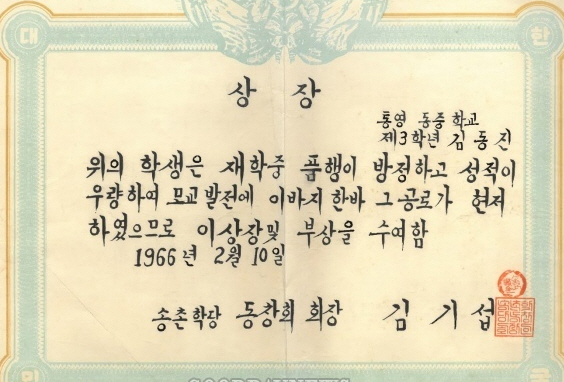 대 한
상 장
통영 동중 학교
제3학년 김 동 진
위의 학생은 재학중 품행이 방정하고 성적이
우량하여 모교 발전에 이바지 한바 그 공로가 현저
하였으므로 이상장 및 부상을 수여함
1966년 2월 10일
송촌학당 동창회 회장 김 기 섭